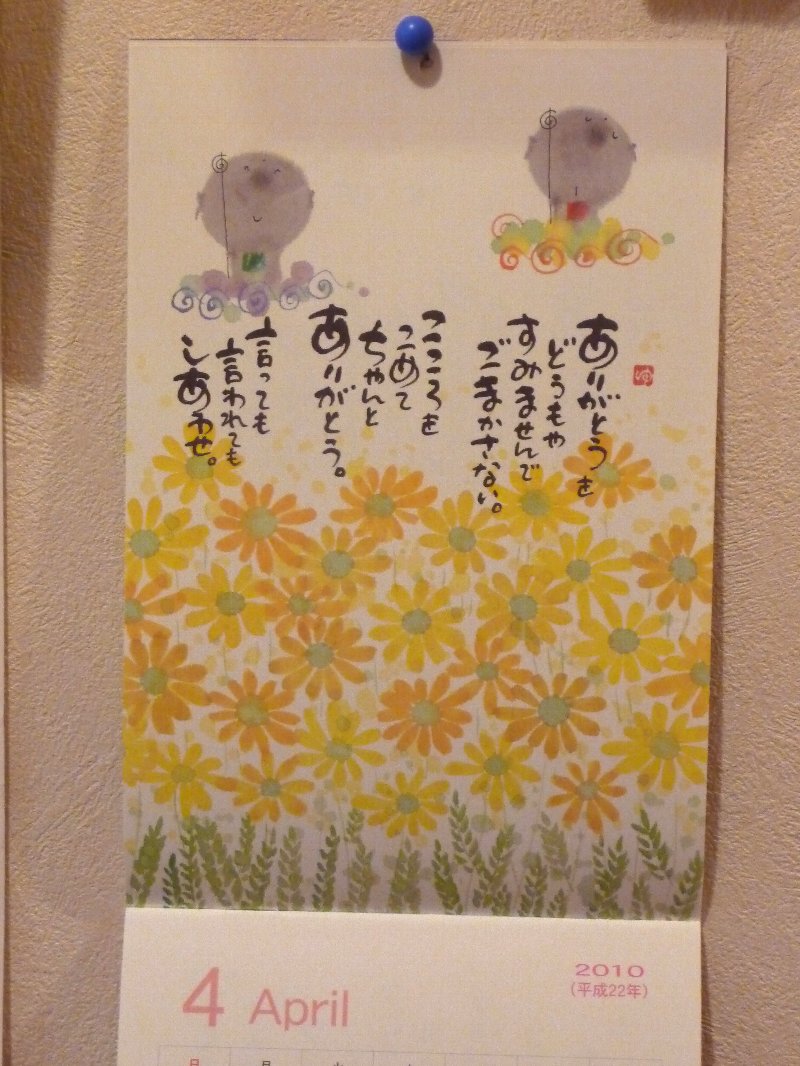 ありがとうを
どうもや
すみませんで
ごまかさない。
こころを
こめて
ちゃんと
ありがとう。
言っても
言われても
しあわせ。
4 April
2010
(平成22年)
日 月